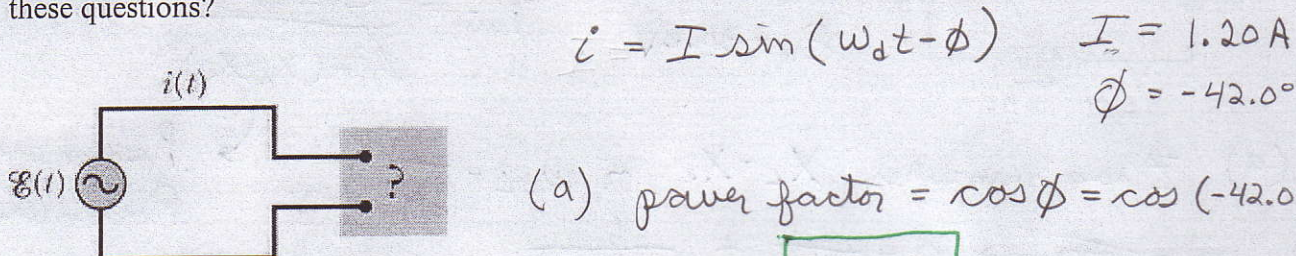 these questions?
i = I sin(ω_d t - ϕ)
I = 1.20 A
ϕ = -42.0°
i(t)
ℰ(t)
?
(a) power factor = cos ϕ = cos (-42.0